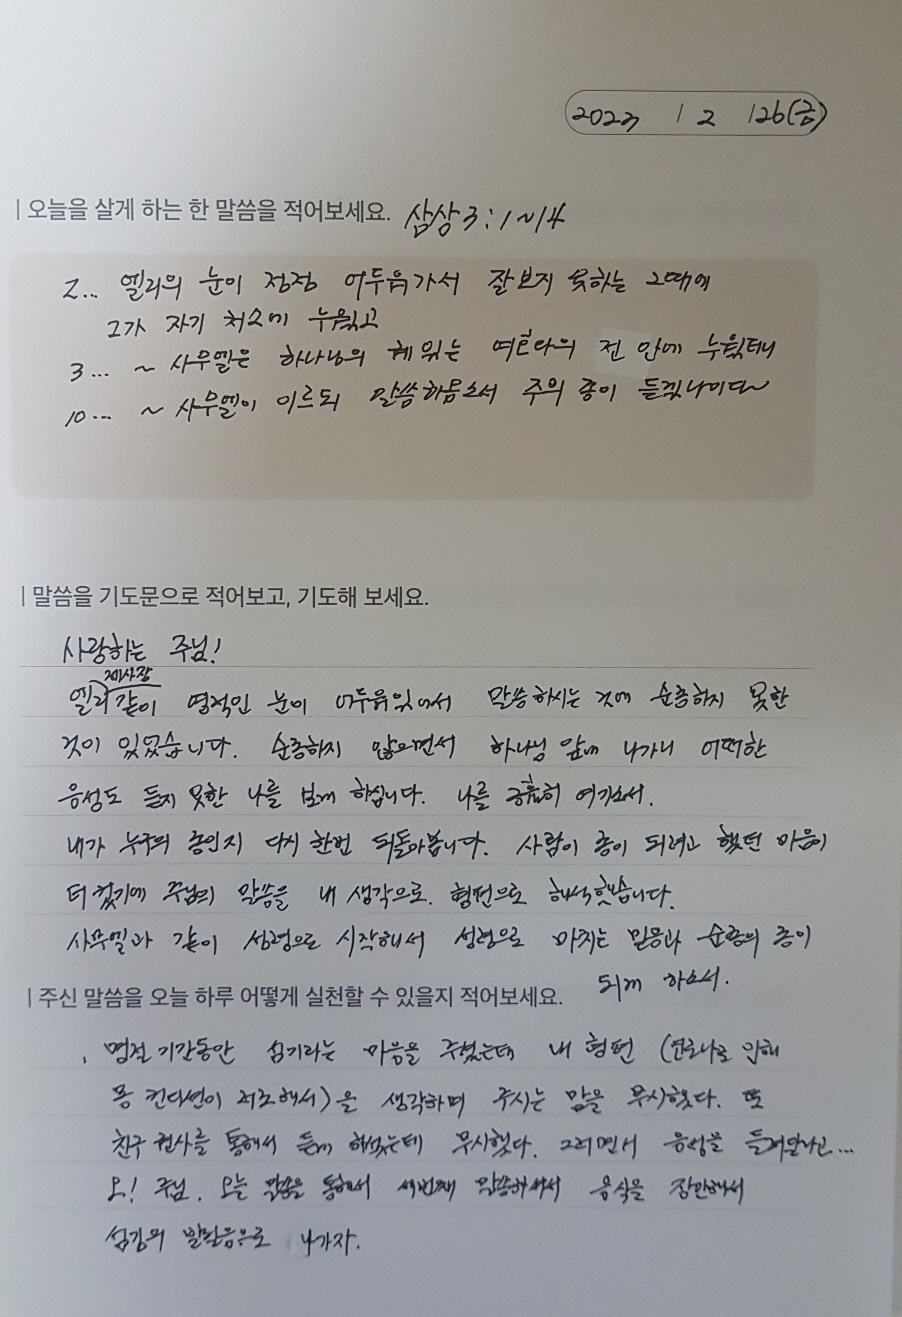 2023 1 2 126(금)
| 오늘을 살게 하는 한 말씀을 적어보세요. 삼상 3:1~14
2... 엘리의 눈이 점점 어두워가서 잘 보지 못하는 그때에
그가 자기 처소에 누웠고
3... ~ 사무엘은 하나님의 궤 있는 여호와의 전 안에 누웠더니
10... ~ 사무엘이 이르되 말씀하옵소서 주의 종이 듣겠나이다~
| 말씀을 기도문으로 적어보고, 기도해 보세요.
사랑하는 주님!
제사장
엘리같이 영적인 눈이 어두워있어서 말씀하시는 것에 순종하지 못한
것이 있었습니다. 순종하지 않으면서 하나님 앞에 나가니 어떠한
음성도 듣지 못한 나를 보게 하십니다. 나를 긍휼히 여기소서.
내가 누구의 종인지 다시 한번 되돌아봅니다. 사람이 종이 되려고 했던 마음이
더 컸기에 주님의 말씀을 내 생각으로. 형편으로 해석했습니다.
사무엘과 같이 성령으로 시작해서 성령으로 마치는 믿음과 순종의 종이
되게 하소서.
| 주신 말씀을 오늘 하루 어떻게 실천할 수 있을지 적어보세요.
. 명절 기간동안 섬기라는 마음을 주셨는데 내 형편 (코로나로 인해
몸 컨디션이 저조해서)을 생각하며 주시는 맘을 무시했다. 또
친구 권사를 통해서 듣게 하셨는데 무시했다. 그러면서 음성을 들려달라고...
오! 주님. 오늘 말씀을 통해서 세번째 말씀하셔서 음식을 장만해서
섬김의 발걸음으로 나가자.